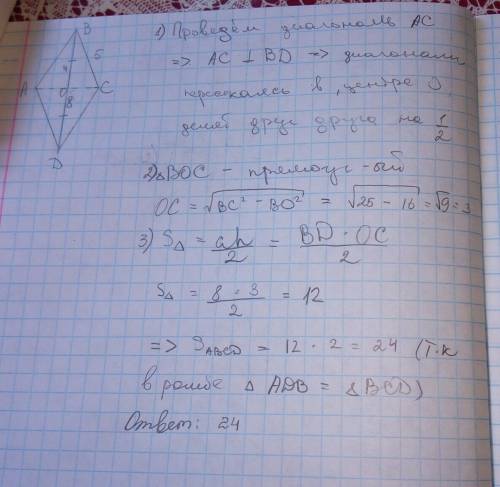 B
4
5
A
O
C
8
D
1) Проведём диагональ AC
=> AC ⊥ BD => диагонали
пересекаясь в , центре O
делят друг друга на 1/2
2) △BOC - прямоуг-ый
OC = √(BC² - BO²) = √(25 - 16) = √9 = 3
3) S△ = ah/2 = BD · OC/2
S△ = 8 · 3/2 = 12
=> S ABCD = 12 · 2 = 24 (т.к
в ромбе △ ADB = △ BCD)
Ответ: 24